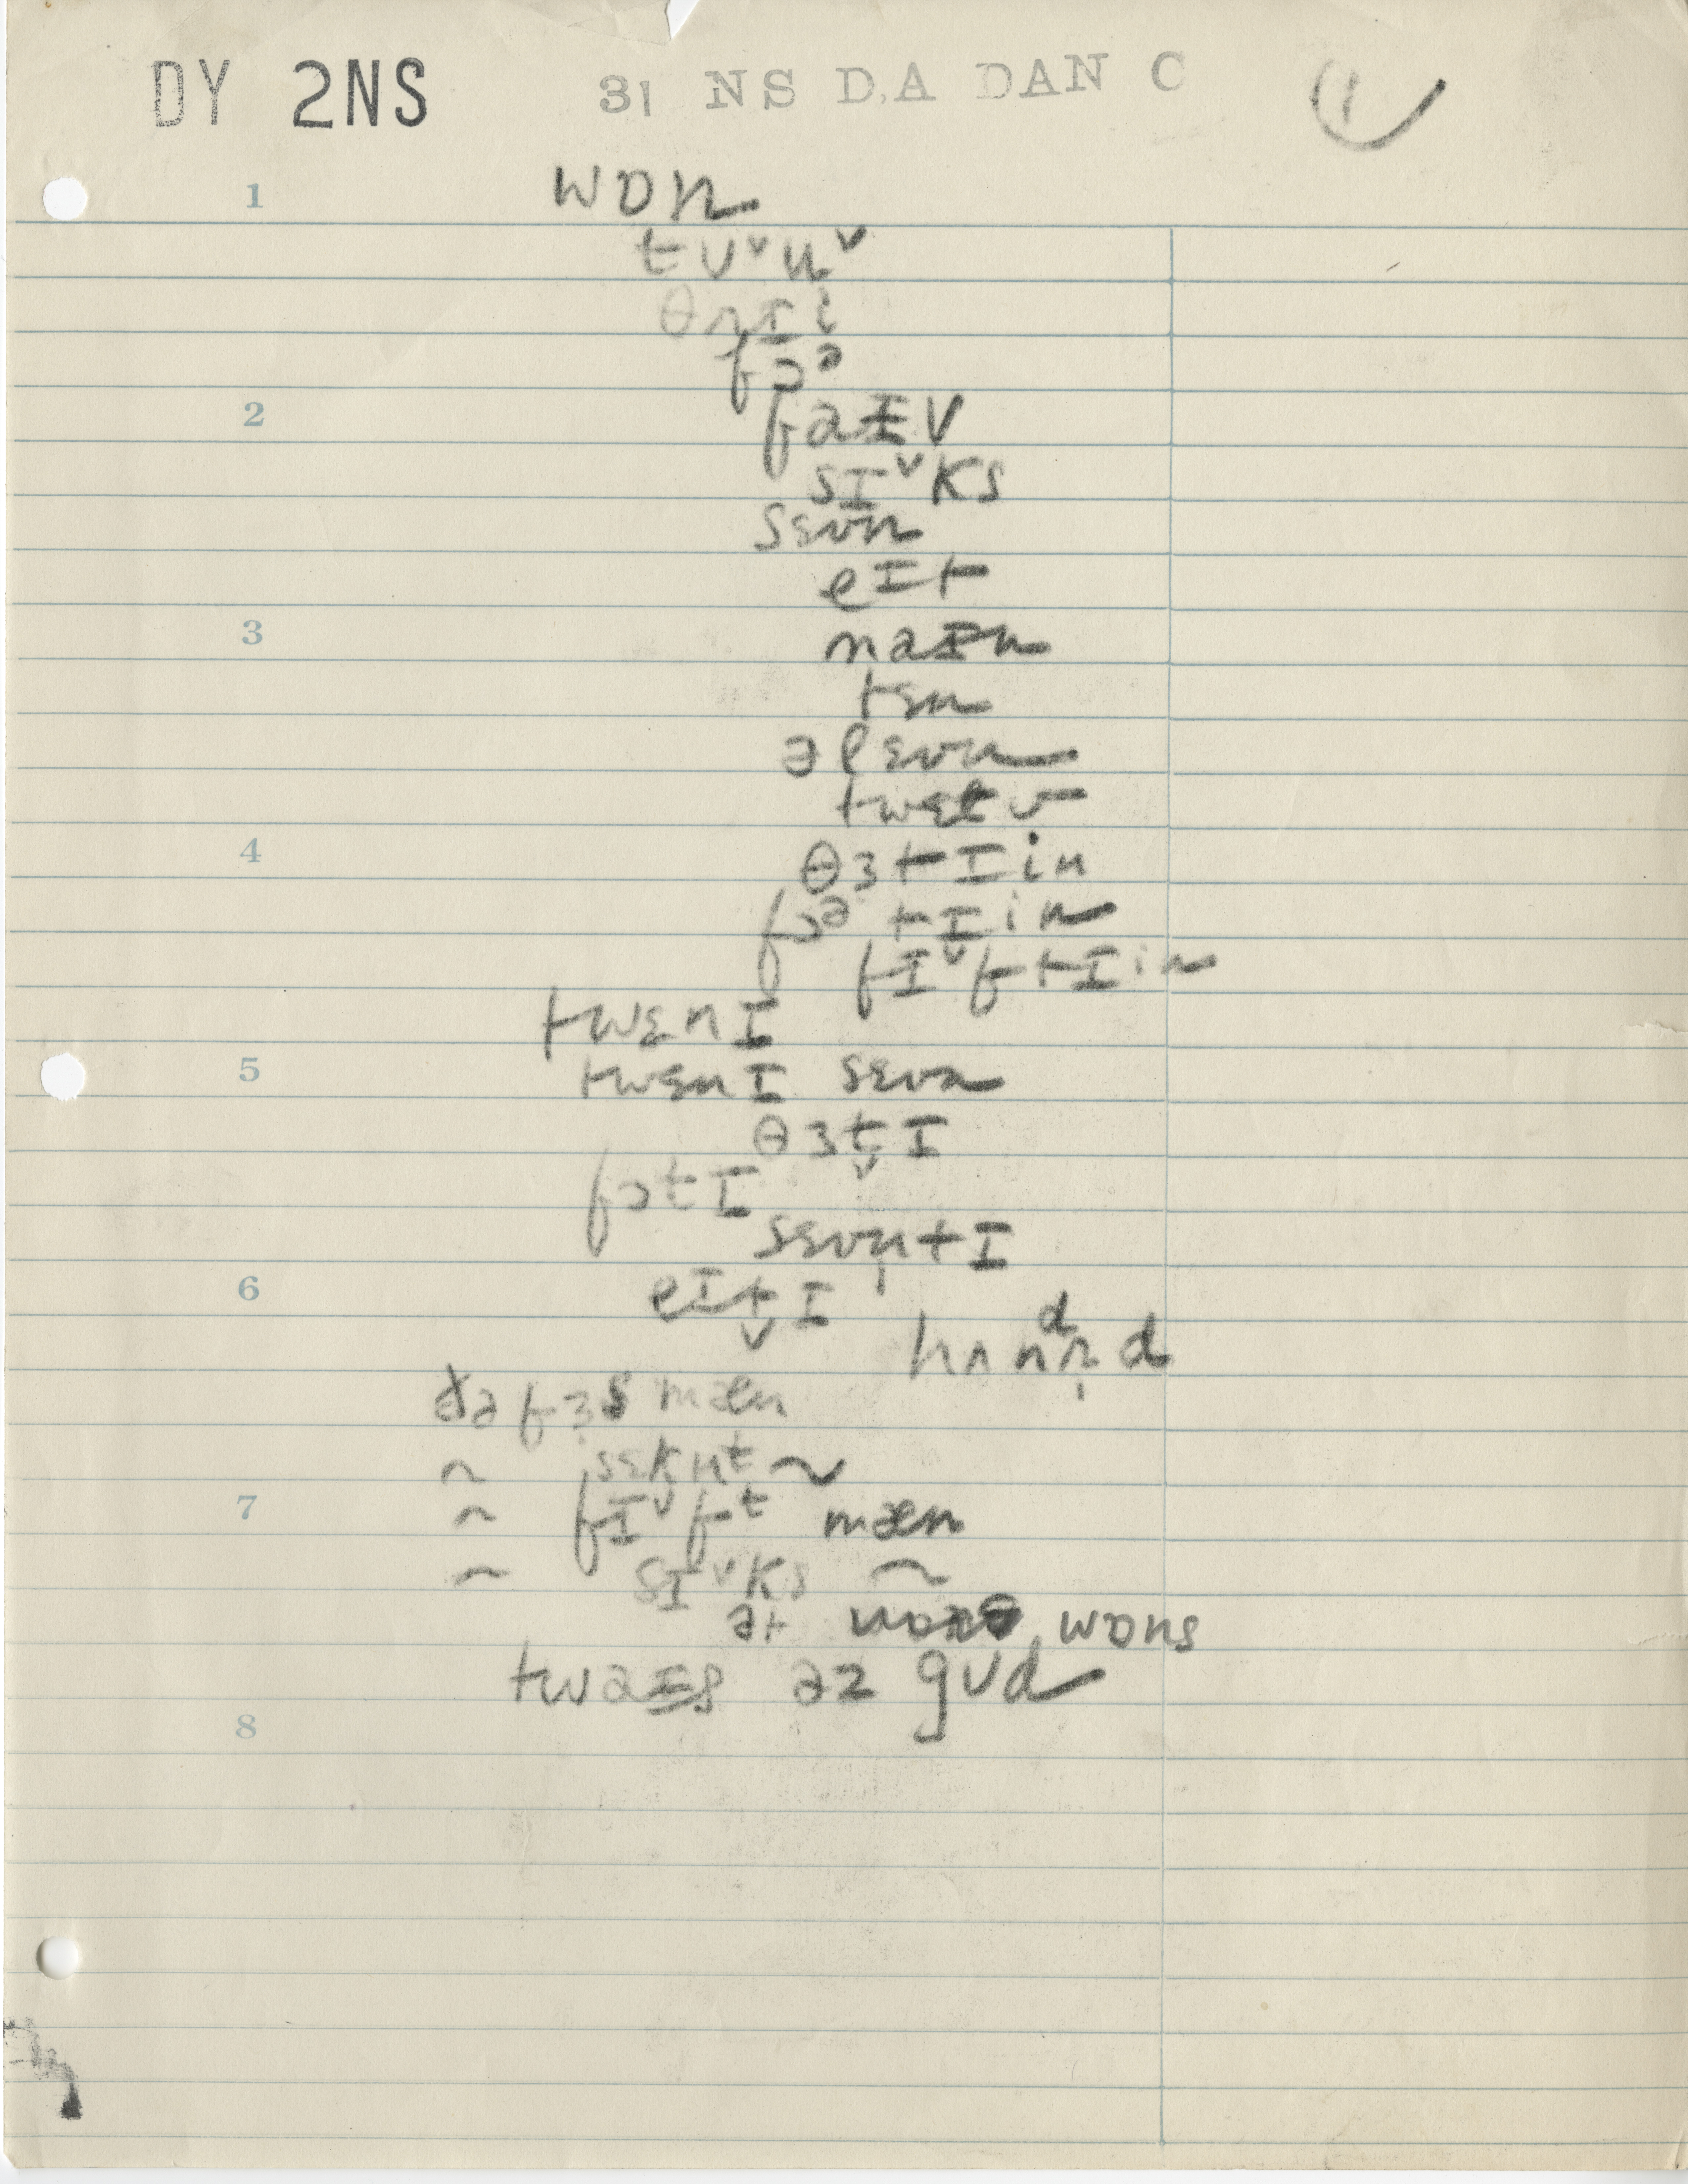 DY 2NS 31 NS D.A DAN C 1
1 wɒn
tʊˇuˇ
θɹɪi
fɔᵊ
2 faɪv
sɪˇks
sɛvn
eɪt
3 naɪn
tɛn
əlɛvn
twɛlv
4 θɜtɪin
fɔᵊ tɪin
fɪˇftɪin
twɛnɪ
5 twɛnɪ sɛvn
θɜt̬ɪ
fɔtɪ
sɛvn̩tɪ
6 eɪt̬ɪ
hʌnᵈɹ̩d
ðə fɜs mæn
~ sɛkn̩ᵗ ~
7 ~ fɪˇfᵗ mæn
~ sɪˇks ~
ət wɒns
twaɪs əz gʊd
8